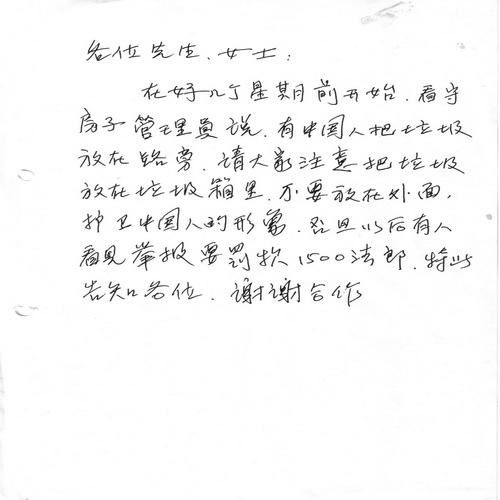 各位先生、女士：
在好几个星期前开始，看守
房子管理员说，有中国人把垃圾
放在路旁，请大家注意把垃圾
放在垃圾箱里，不要放在外面，
护卫中国人的形象，否且以后有人
看见举报要罚款1500法郎，特此
告知各位，谢谢合作